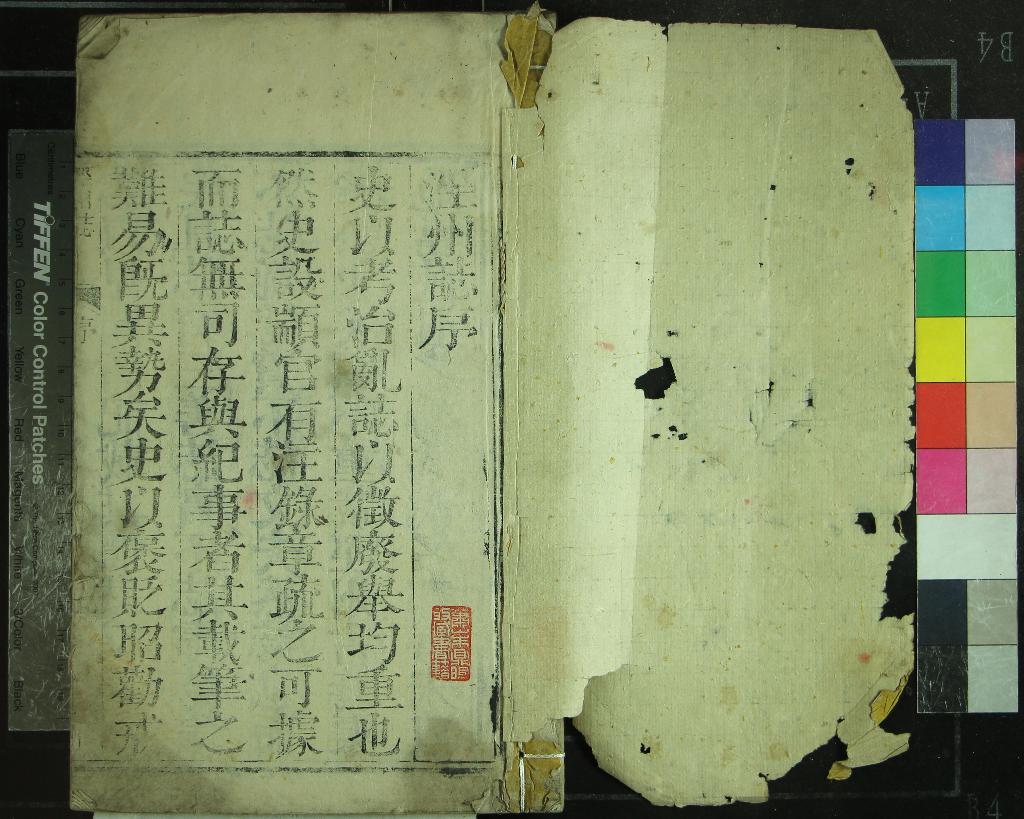 涇州誌序
史以考治亂誌以徵廢舉均重也
然史設顓官有注錄章疏之可據
而誌無司存與紀事者其載筆之
難易旣異勢矣史以褒貶昭勸戒
州誌
序
TIFFEN Color Control Patches
Centimetres
Blue Cyan Green Yellow Red Magenta White 3/Color Black
B4
A
B4